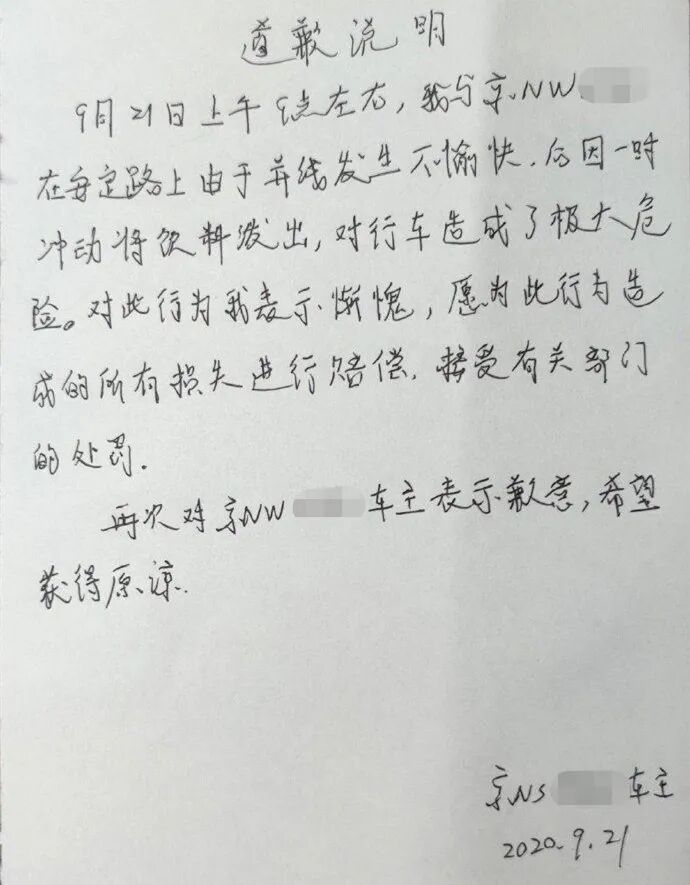 道歉说明
9月21日上午9点左右，我与京NW
在安定路上由于并线发生不愉快，后因一时
冲动将饮料泼出，对行车造成了极大危
险。对此行为我表示惭愧，愿为此行为造
成的所有损失进行赔偿，接受有关部门
的处罚.
再次对京NW 车主表示歉意，希望
获得原谅.
京NS 车主
2020.9.21